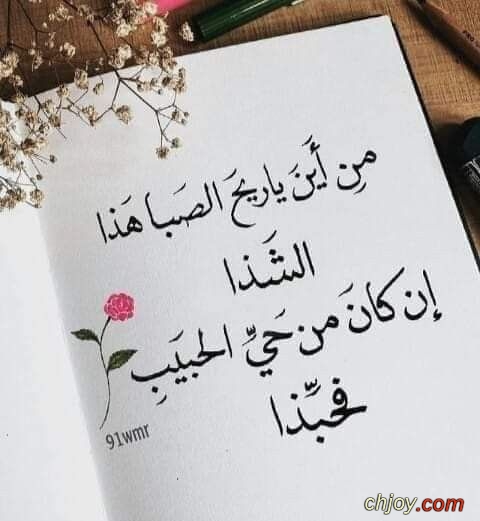 مِن أَينَ ياريحَ الصَبا هَذا
الشَذا
إن كانَ من حَيِّ الحبيَبِ
فحبِّذا
91wmr
chjoy.com